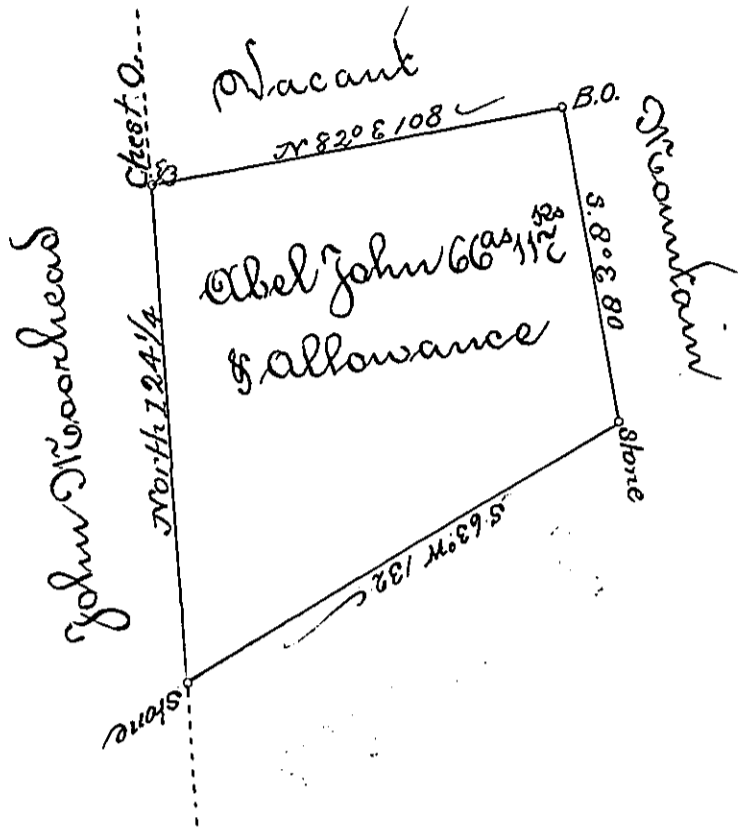 Vacant
Chest. O.
N 82° E 108
B.O.
Mountain
S. 8° E 80
Abel John 66 as 11 Ps
& allowance
John Moorhead
North 124 1/4
Stone
S. 63° W 132
Stone